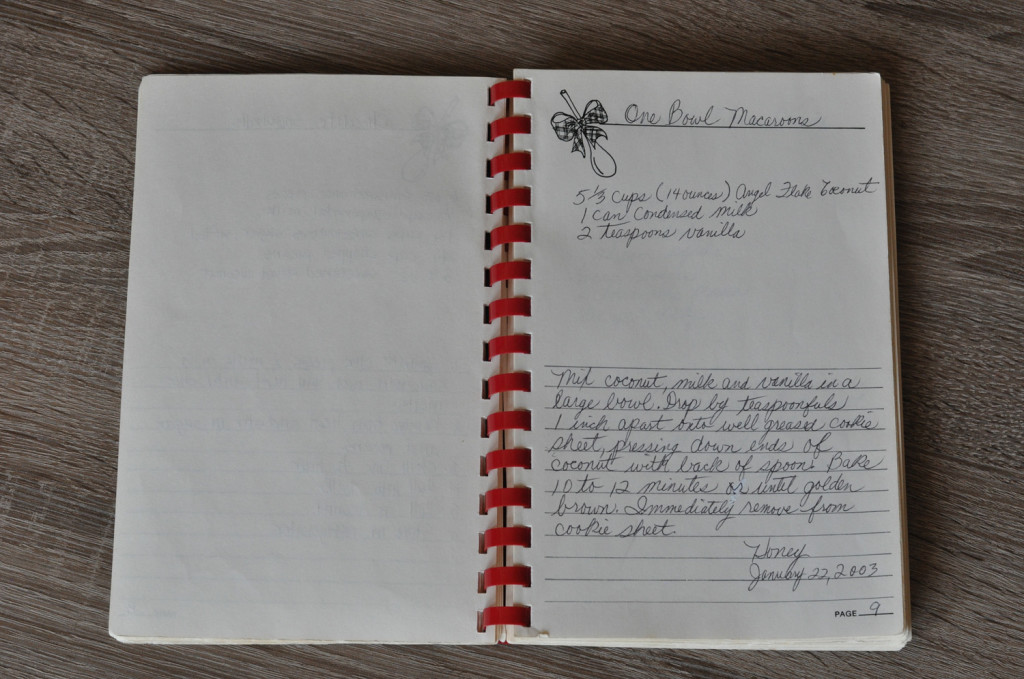 One Bowl Macaroons
5 1/3 cups (14 ounces) Angel Flake Coconut
1 can condensed milk
2 teaspoons vanilla
Mix coconut, milk and vanilla in a
large bowl. Drop by teaspoonfuls
1 inch apart onto well greased cookie
sheet, pressing down ends of
coconut with back of spoon. Bake
10 to 12 minutes or until golden
brown. Immediately remove from
cookie sheet.
Honey
January 22, 2003
PAGE 9